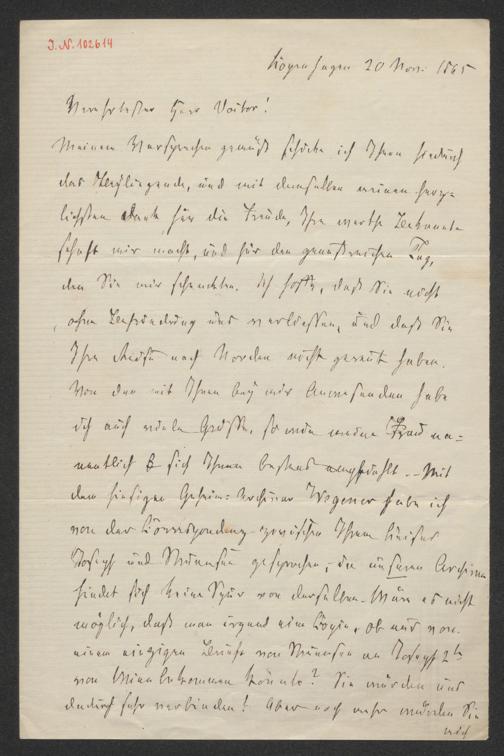 I.N. 102614
Kopenhagen 20 Nov. 1865
Verehrtester Herr Doctor!
Meinem Versprechen gemäß schicke ich Ihnen hiedurch
das Beyliegende, und mit demselben meinen herz-
lichsten Dank für die Freude, Ihre werthe Bekannt-
schaft mir macht, und für den genußreichen Tag,
den Sie mir schenkten. Ich hoffe, daß Sie nicht
ohne Befriedigung uns verließen, und daß Sie
Ihre Reise nach Norden nicht gereut haben.
Von den mit Ihnen bey mir Anwesenden habe
ich auch viele Grüße, so wie meine Frau na-
mentlich sich Ihnen bestens empfiehlt. – Mit
dem hiesigen Geheim-Archivar Wegener habe ich
von der Correspondenz zwischen Ihrem Kaiser
Joseph und gesprochen, in unseren Archiven
findet sich keine Spur von derselben. Wäre es nicht
möglich, daß man irgend eine Copie, ob nur von
einem einzigen Briefe von an Joseph 2
von Wien bekommen könnte? Sie würden uns
dadurch sehr verbinden! Aber noch mehr würden Sie
mich